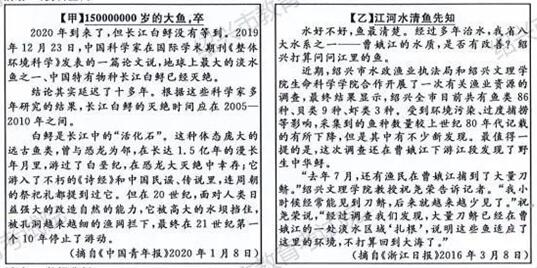 【甲】150000000 岁的大鱼,卒
2020 年到来了,但长江白鲟没有等到。2019
年 12 月 23 日,中国科学家在国际学术期刊《整体
环境科学》发表的一篇论文说,地球上最大的淡水
鱼之一、中国特有物种长江白鲟已经灭绝。
结论其实延迟了十多年。根据这些科学家多
年研究的结果,长江白鲟的灭绝时间应在 2005—
2010 年之间。
白鲟是长江中的“活化石”。这种体态庞大的
远古鱼类,曾与恐龙为邻,在长达 1.5 亿年的漫长
年月里,游过了白垩纪,在恐龙大灭绝中幸存;它
游入了不朽的《诗经》和中国民谚、传说里,连周朝
的祭祀礼都提到过它。但在 20 世纪,面对人类日
益强大的改造自然的能力,它被高大的水坝挡住,
被孔洞越来越细的渔网拦下,最终在 21 世纪第一
个 10 年停止了游动。
(摘自《中国青年报》2020 年 1 月 8 日)
【乙】江河水清鱼先知
水好不好,鱼最清楚。经过多年治水,我省八
大水系之一——曹娥江的水质,是否有改善?绍
兴打算问问江里的鱼。
近期,绍兴市水政渔业执法局和绍兴文理学
院生命科学学院合作开展了一次有关渔业资源的
调查,最终结果显示,绍兴全市目前共有鱼类 86
种、贝类 9 种、虾类 3 种。受到环境污染、过度捕捞
等影响,采集到的鱼种数量较上世纪 80 年代记载
的有所下降,但是其中有不少新发现。最值得一
提的是,这次调查还在曹娥江下游江段发现了野
生中华鲟。
“去年 7 月,还有渔民在曹娥江捕到了大量刀
鲚。”绍兴文理学院教授祝尧荣告诉记者。“我小
时候经常能见到刀鲚,后来就越来越少见了。”祝
尧荣说,“经过调查我们发现,大量刀鲚已经在曹
娥江的一处淡水区域‘扎根’,说明这些鱼适应了
这里的环境,不打算回到大海了。”
(摘自《浙江日报》2016 年 3 月 8 日)